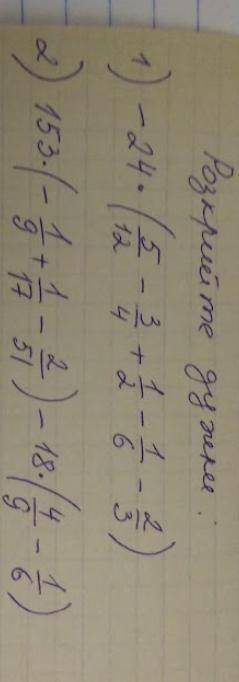 Розкрийте дужки:
1) -24·(5/12 - 3/4 + 1/2 - 1/6 - 2/3)
2) 153·(-1/9 + 1/17 - 2/51) - 18·(4/9 - 1/6)